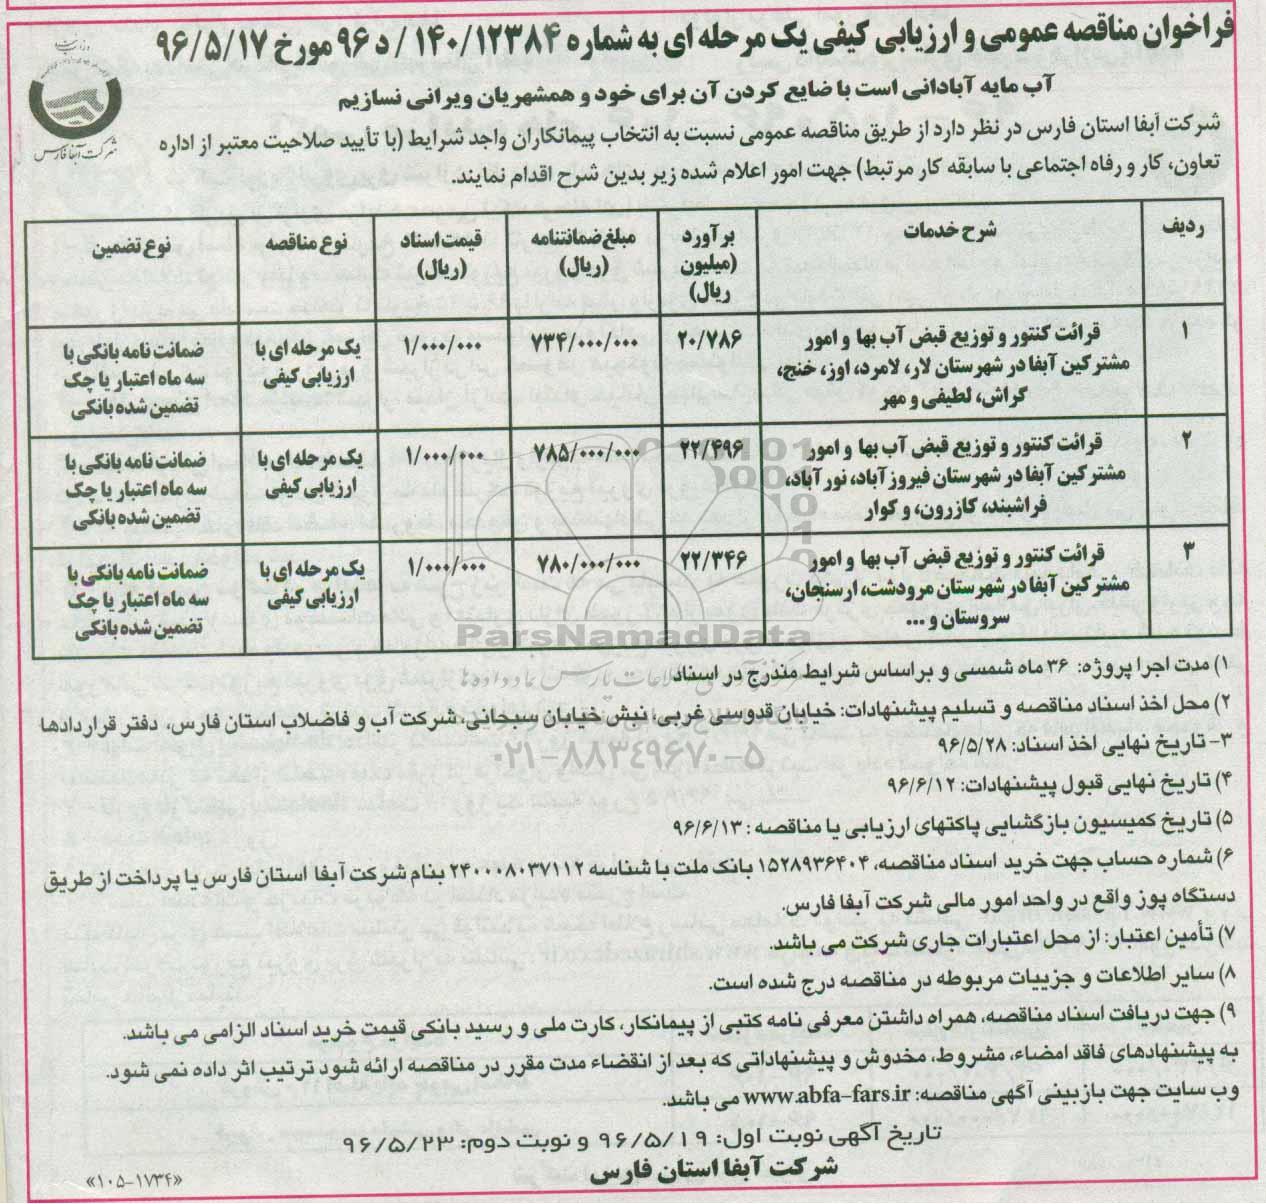 فراخوان مناقصه عمومی و ارزیابی کیفی یک مرحله ای به شماره ۱۴۰/۱۲۳۸۴/ د ۹۶ مورخ ۹۶/۵/۱۷
آب مایه آبادانی است با ضایع کردن آن برای خود و همشهریان ویرانی نسازیم
شرکت آبفا فارس
شرکت آبفا استان فارس در نظر دارد از طریق مناقصه عمومی نسبت به انتخاب پیمانکاران واجد شرایط (با تأیید صلاحیت معتبر از اداره
تعاون، کار و رفاه اجتماعی با سابقه کار مرتبط) جهت امور اعلام شده زیر بدین شرح اقدام نمایند.
ردیف شرح خدمات برآورد (میلیون ریال) مبلغ ضمانتنامه (ریال) قیمت اسناد (ریال) نوع مناقصه نوع تضمین
۱ قرائت کنتور و توزیع قبض آب بها و امور مشترکین آبفا در شهرستان لار، لامرد، اوز، خنج، گراش، لطیفی و مهر ۲۰/۷۸۶ ۷۳۴/۰۰۰/۰۰۰ ۱/۰۰۰/۰۰۰ یک مرحله ای با ارزیابی کیفی ضمانت نامه بانکی با سه ماه اعتبار یا چک تضمین شده بانکی
۲ قرائت کنتور و توزیع قبض آب بها و امور مشترکین آبفا در شهرستان فیروزآباد، نورآباد، فراشبند، کازرون، و کوار ۲۲/۴۹۶ ۷۸۵/۰۰۰/۰۰۰ ۱/۰۰۰/۰۰۰ یک مرحله ای با ارزیابی کیفی ضمانت نامه بانکی با سه ماه اعتبار یا چک تضمین شده بانکی
۳ قرائت کنتور و توزیع قبض آب بها و امور مشترکین آبفا در شهرستان مرودشت، ارسنجان، سروستان و ... ۲۲/۳۴۶ ۷۸۰/۰۰۰/۰۰۰ ۱/۰۰۰/۰۰۰ یک مرحله ای با ارزیابی کیفی ضمانت نامه بانکی با سه ماه اعتبار یا چک تضمین شده بانکی
ParsNamadData
۱) مدت اجرا پروژه: ۳۶ ماه شمسی و براساس شرایط مندرج در اسناد
۲) محل اخذ اسناد مناقصه و تسلیم پیشنهادات: خیابان قدوسی غربی، نبش خیابان سبحانی، شرکت آب و فاضلاب استان فارس، دفتر قراردادها
۳- تاریخ نهایی اخذ اسناد: ۹۶/۵/۲۸
۰۲۱-۸۸۳۴۹۶۷۰-۵
۴) تاریخ نهایی قبول پیشنهادات: ۹۶/۶/۱۲
۵) تاریخ کمیسیون بازگشایی پاکتهای ارزیابی یا مناقصه: ۹۶/۶/۱۳
۶) شماره حساب جهت خرید اسناد مناقصه، ۱۵۲۸۹۳۶۴۰۴ بانک ملت با شناسه ۲۴۰۰۰۸۰۳۷۱۱۲ بنام شرکت آبفا استان فارس یا پرداخت از طریق
دستگاه پوز واقع در واحد امور مالی شرکت آبفا فارس.
۷) تأمین اعتبار: از محل اعتبارات جاری شرکت می باشد.
۸) سایر اطلاعات و جزییات مربوطه در مناقصه درج شده است.
۹) جهت دریافت اسناد مناقصه، همراه داشتن معرفی نامه کتبی از پیمانکار، کارت ملی و رسید بانکی قیمت خرید اسناد الزامی می باشد.
به پیشنهادهای فاقد امضاء، مشروط، مخدوش و پیشنهاداتی که بعد از انقضاء مدت مقرر در مناقصه ارائه شود ترتیب اثر داده نمی شود.
وب سایت جهت بازبینی آگهی مناقصه: www.abfa-fars.ir می باشد.
تاریخ آگهی نوبت اول: ۹۶/۵/۱۹ و نوبت دوم: ۹۶/۵/۲۳
شرکت آبفا استان فارس
«۱۰۵-۱۷۳۴»